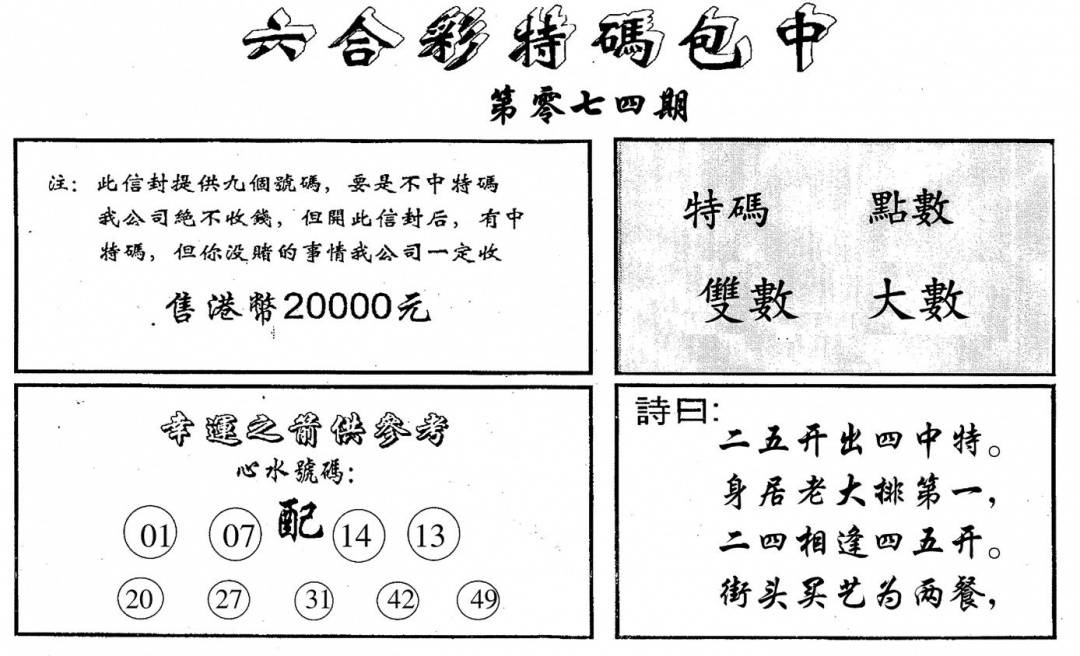 六合彩特碼包中
第零七四期
注：此信封提供九個號碼，要是不中特碼
我公司絕不收錢，但開此信封后，有中
特碼，但你没賭的事情我公司一定收
售港幣20000元
特碼 點數
雙數 大數
幸運之箭供參考
心水號碼：
01 07 配 14 13
20 27 31 42 49
詩曰：
二五开出四中特。
身居老大排第一，
二四相逢四五开。
街头买艺为两餐，